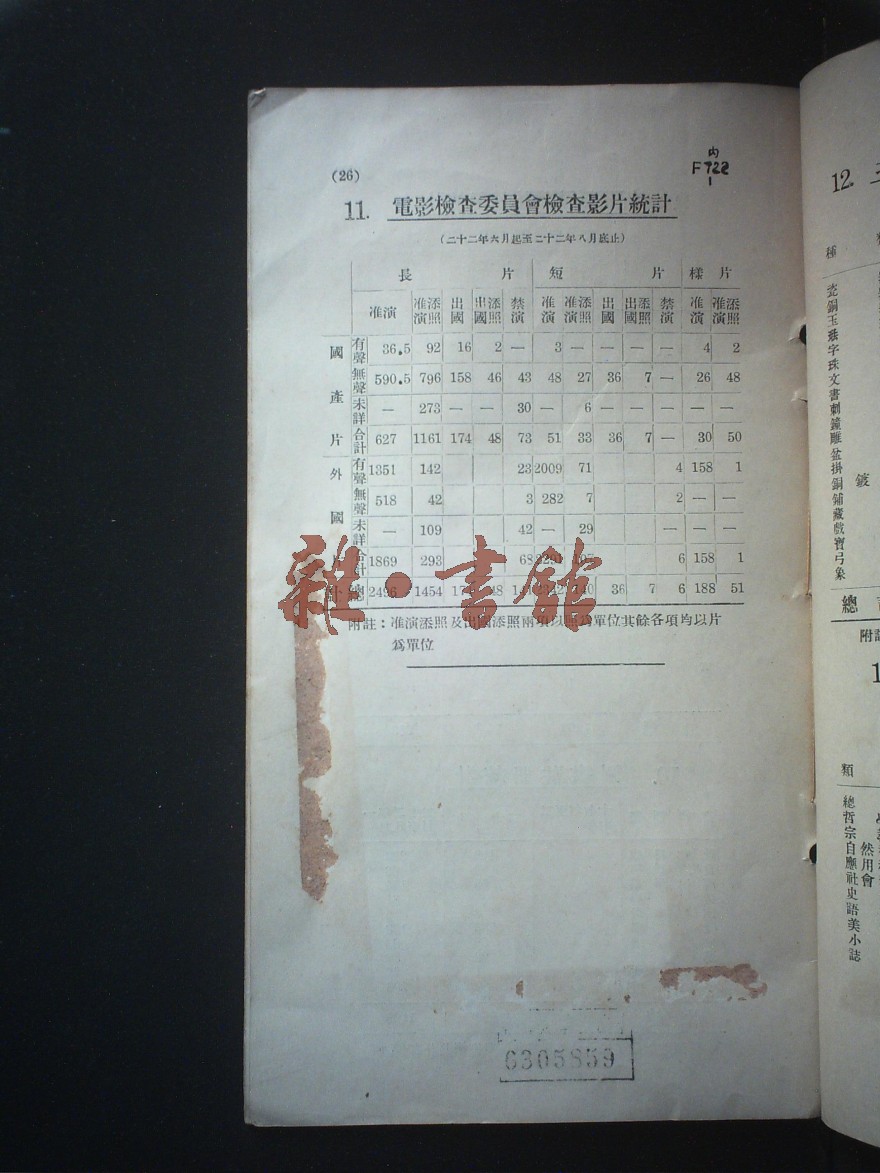 (26)
内
F722
1
11. 電影檢查委員會檢查影片統計
(二十二年六月起至二十二年八月底止)
長片 短片 樣片
准演 准演添照 出國 出國添照 禁演 准演 准演添照 出國 出國添照 禁演 准演 准演添照
國產片 有聲 36.5 92 16 2 — 3 — — — — 4 2
無聲 590.5 796 158 46 43 48 27 36 7 — 26 48
未詳 — 273 — — 30 — 6 — — — — —
合計 627 1161 174 48 73 51 33 36 7 — 30 50
外國片 有聲 1351 142 23 2009 71 4 158 1
無聲 518 42 3 282 7 2 — —
未詳 — 109 42 — 29 — — —
合計 1869 293 68 6 158 1
總計 2496 1454 36 7 6 188 51
附註：准演添照及出國添照兩項以照爲單位其餘各項均以片
爲單位
雜·書館
6305859
12.
種
瓷銅玉
字珠文書刺鐘雕盆掛銅鋪藏戲寶弓象
鍍
總
附註
1
類
總哲宗自應社史語美小誌
然用會